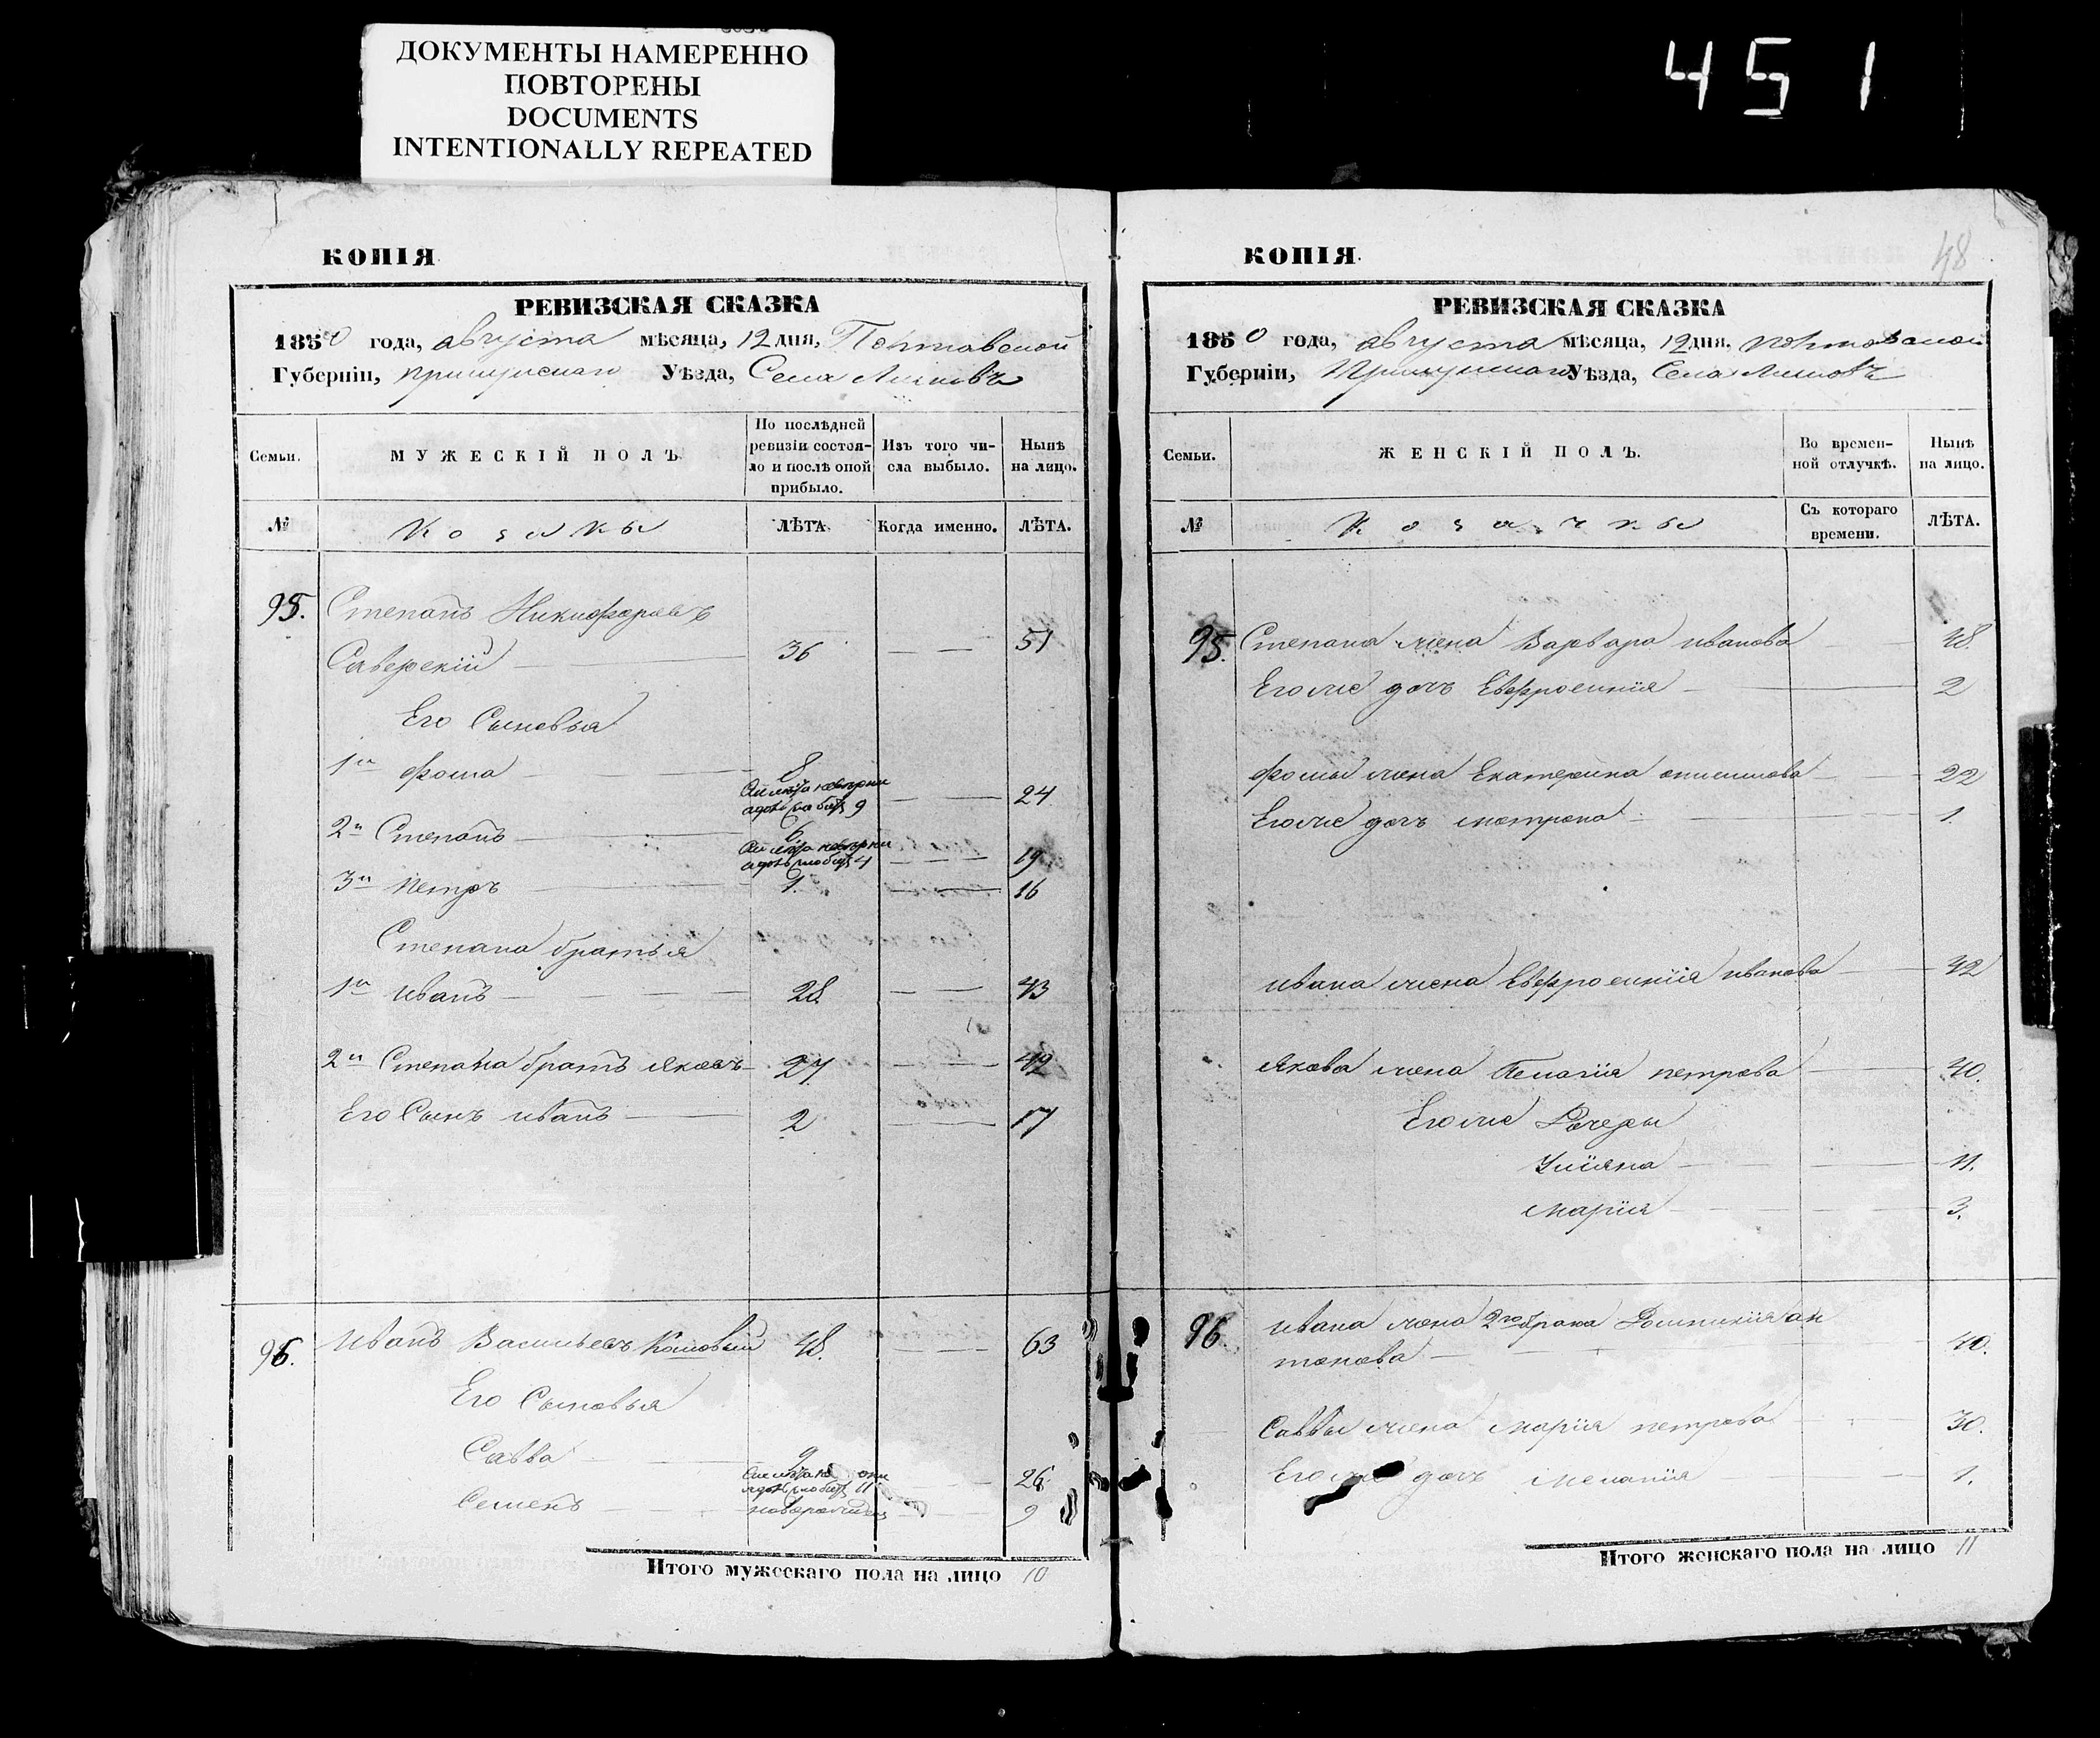 ДОКУМЕНТЫ НАМЕРЕННО
ПОВТОРЕНЫ
DOCUMENTS
INTENTIONALLY REPEATED
451
КОПІЯ
РЕВИЗСКАЯ СКАЗКА
1850 года, августа мѣсяца, 12 дня, Полтавской
Губерніи, Прилуцкаго Уѣзда, Села
Семьи. МУЖЕСКІЙ ПОЛЪ По послѣдней ревизіи состояло и послѣ оной прибыло. Изъ того числа выбыло. Нынѣ на лицо.
№ Козаки ЛѢТА Когда именно. ЛѢТА.
95. Степанъ Никифоровъ
Саверскій 36 51
Его Сыновья
1й Фома 8 24
9
2й Степанъ 6 19
4
3й Петръ 1. 16
Степана братья
1й Иванъ 28 43
2й Степана братъ Яковъ 27 42
Его Сынъ Иванъ 2 17
96. Иванъ Васильевъ 48. 63
Его Сыновья
Савва 9 26
11
Семенъ новорожденъ 9
Итого мужескаго пола на лицо 10
48
КОПІЯ.
РЕВИЗСКАЯ СКАЗКА
1850 года, августа мѣсяца, 12 дня, Полтавской
Губерніи, Прилуцкаго Уѣзда, Села
Семьи. ЖЕНСКІЙ ПОЛЪ. Во временной отлучкѣ. Нынѣ на лицо.
№ Козачки Съ котораго времени. ЛѢТА.
95. Степана жена Варвара Иванова 48.
Его же дочь Евфросинія 2
Фомы жена Екатерина 22
Его же дочь Мотрона 1.
Ивана жена Евфросинія Иванова 42
Якова жена Пелагія Петрова 40.
Его же Дочери
Уліяна 11.
Марія 3.
96. Ивана жена 2го брака Домникія Ан
тонова 40.
Саввы жена Марія Петрова 30.
Его же дочь Меланія 1.
Итого женскаго пола на лицо 11